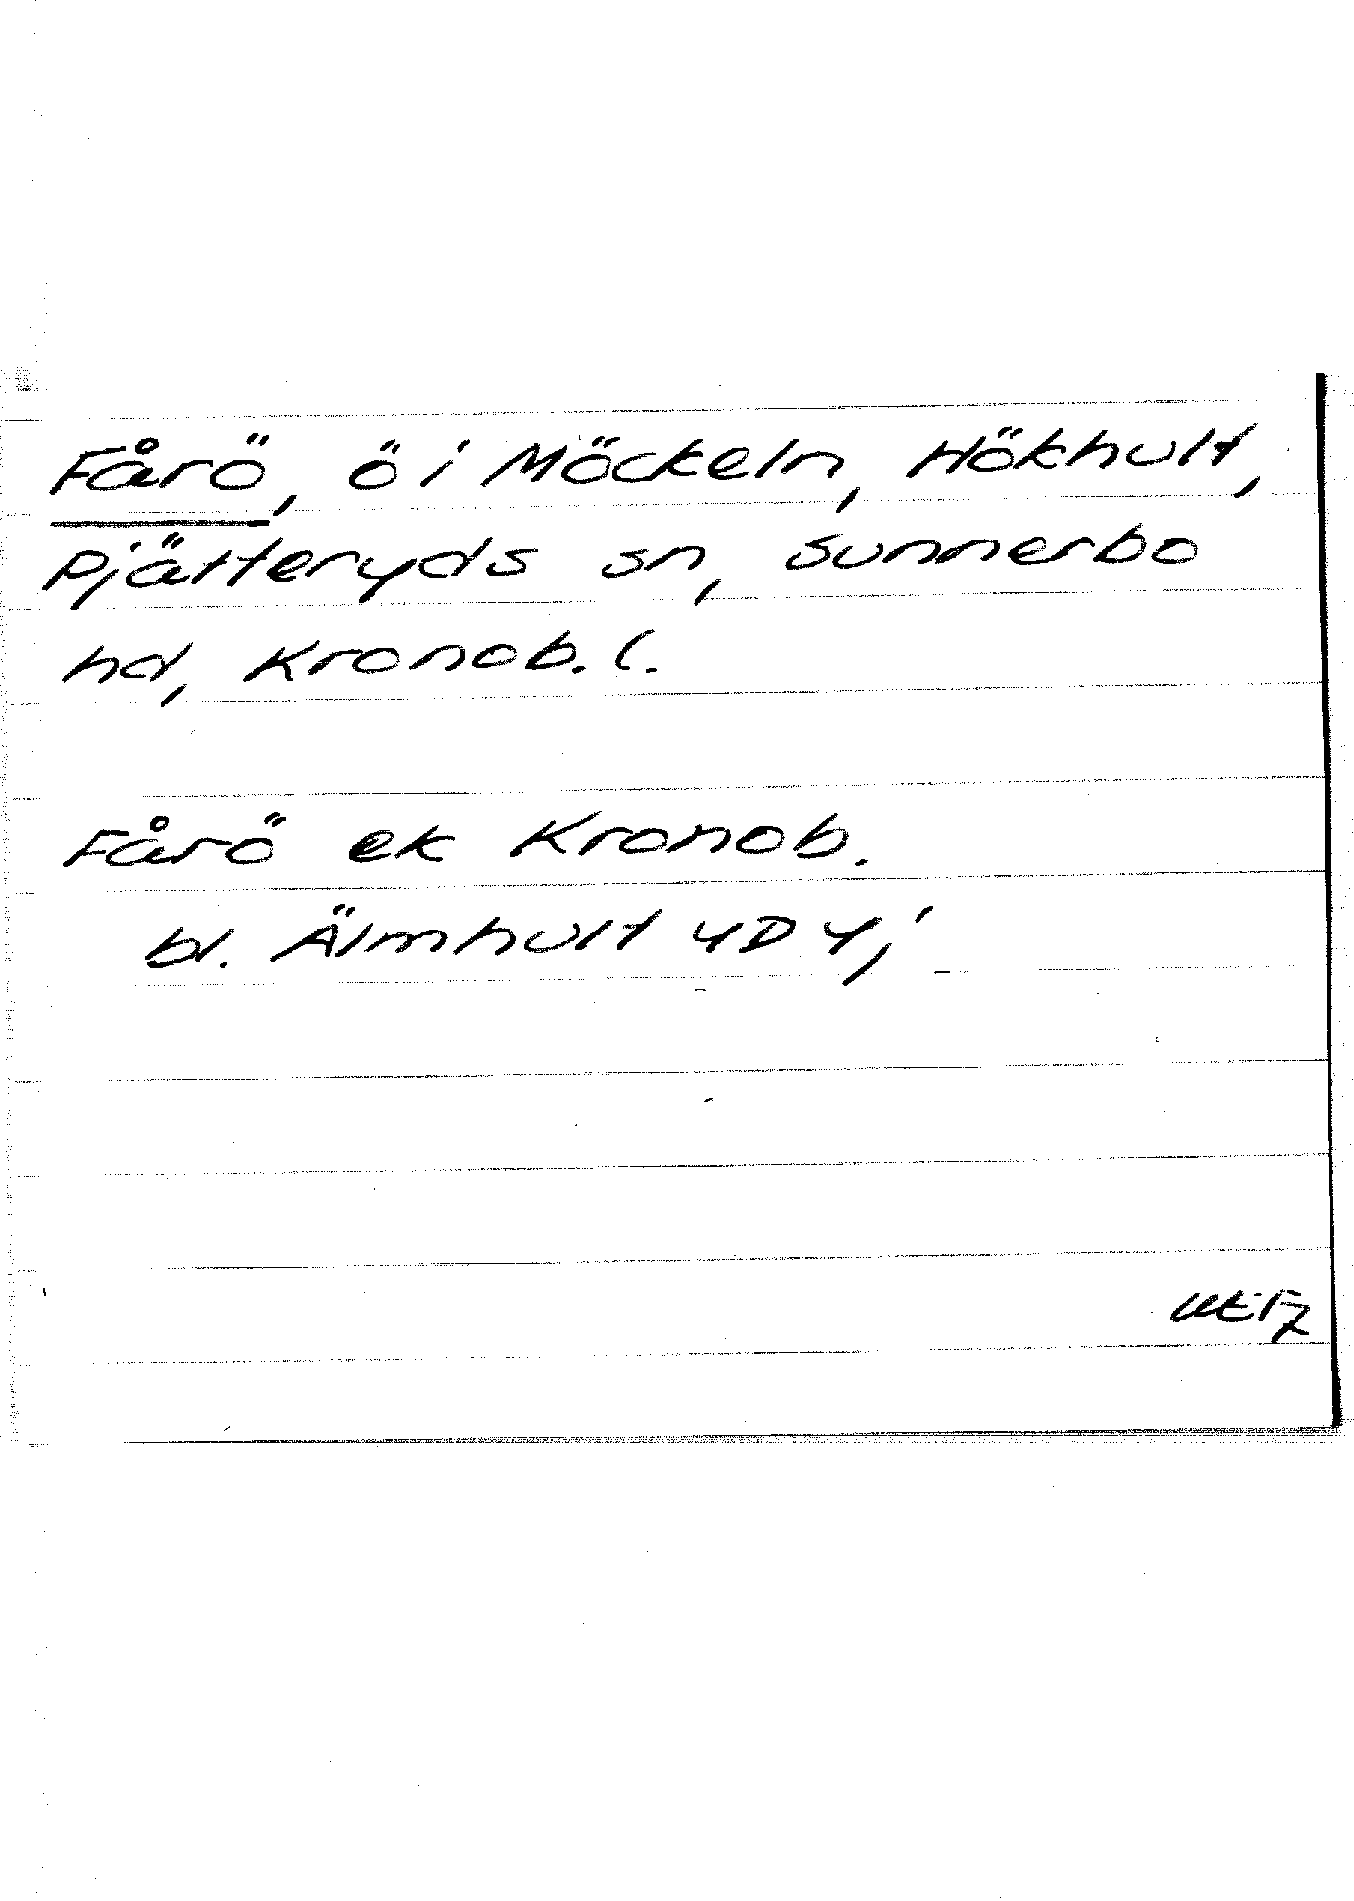 Fårö, ö i Möckeln, Hökhult,
Pjätteryds sn, Sunnerbo
hd, Kronob. l.
Fårö ek Kronob.
bl. Älmhult 4D4,